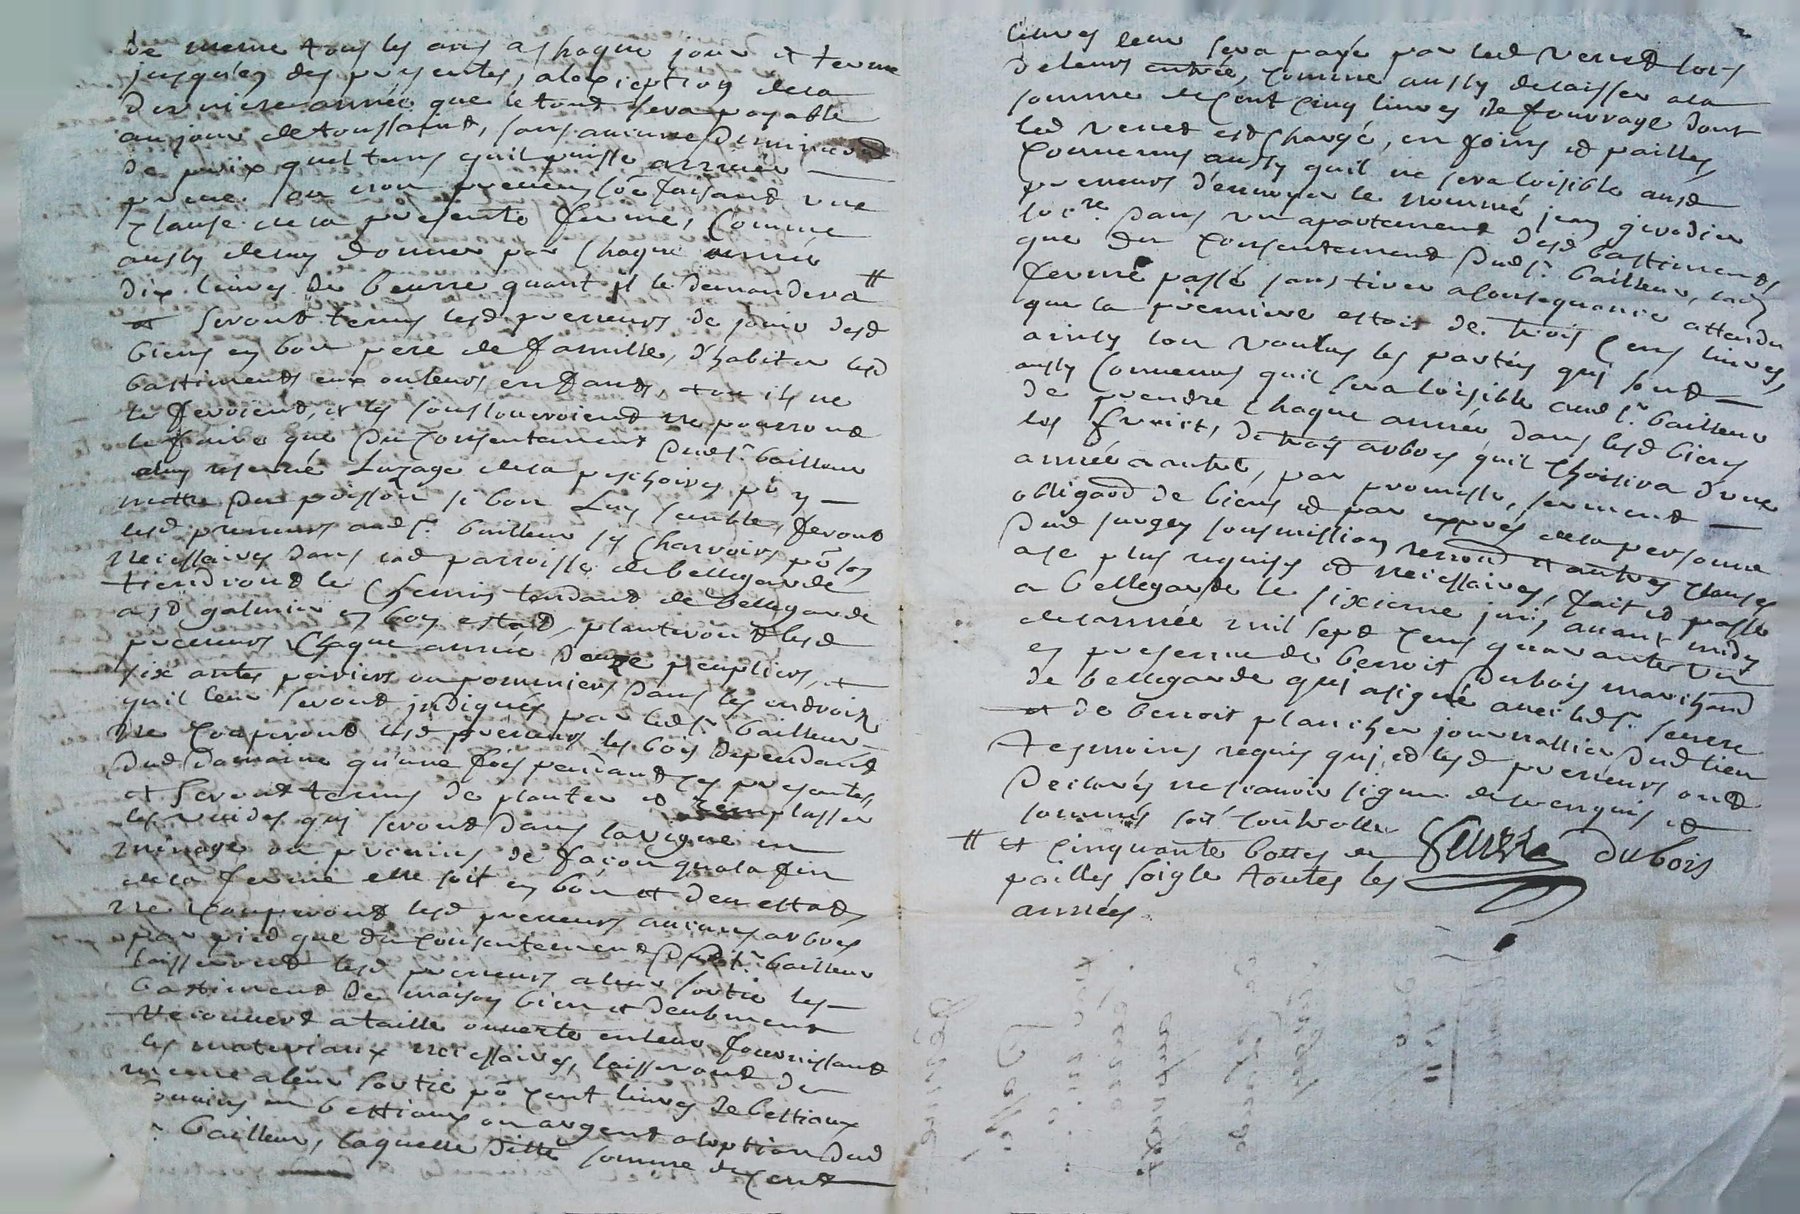 de meme tous les ans a chaque jour et terme
jusqu'en des presentes, a lexception de la
derniere année que le tout sera payable
au jour de toussaint, sans aucune diminuôn
de prix quel tems quil puisse arriver
preveu ou non preveu sôe faisant une
clause de la presente ferme, Comme
aussy de luy donner par Chaque année
dix livres de beurre quant il le demandera #
et seront tenus lesd preneurs de jouir desd
biens en bon pere de famille, d'habiter lesd
bastiments eux ou leurs enfants, et ou ils ne
le feroient, et les sousloueroient ne pourront
le faire que du consentement dud sr bailleur
reservé Luzage de la peschoire pô y
mettre du poisson si bon Luy semble, feront
lesd preneurs aud sr bailleur les Charrois pô les
necessaires dans lad parroisse de bellegarde
tiendront le Chemin tendant de bellegarde
a st galmier en bon estat, planteront lesd
preneurs Chaque année douze peupliers, et
six antes poiriers ou pommiers dans les endroits
quil leur seront indiqués par led sr bailleur
ne couperont lesd preneurs les bois dependant
dud domaine qu'une fois pendant ces presentes,
et seront tenus de planter et remplasser
les vuides qui seront dans la vigne en
menage ou prouins de façon qua la fin
de la ferme elle soit en bon et deu estat,
ne couperont lesd preneurs aucuns arbres
par pied que du consentement dud sr bailleur
laisseront lesd preneurs a leur sortie les
bastiment de maison bien et deubment
recouvert a taille ouverte en leur fournissant
les materiaux necessaires, laisseront de
meme a leur sortie pô cent livres de bestiaux
en bestiaux ou argent a loption dud
sr bailleur, laquelle ditte somme de cent
livres leur sera payé par led veret lors
de leurs entrée, comme aussy delaisser a la
somme de cent cinq livres de fourrage dont
led veret est chargé, en foins et pailles,
Convenus aussy quil ne sera loisible ausd
preneurs d'envoyer le nommé jean
locre dans un apartement desd bastiments,
que du consentement dud sr bailleur, lad
ferme passé sans tirer a consequence attendu
que la premiere estoit de trois cens livres,
ainsy lon voulus les partes qui sont
aussy Convenus quil sera loisible aud sr bailleur
de prendre Chaque année dans lesd biens
les fruict, de trois arbres quil choisira d'une
année a autre, par promesse, serment
obligaôn de biens et par expres de la personne
dud surgey sousmission renonôn et autres clauses
a ce plus requises et necessaires, fait et passé
a bellegarde le sixieme juin avant midy
de l'année mil sept cens quarante un
en presence de benoit Dubois marchand
de bellegarde qui a signé avec led sr serere
et de benoit plancher journallier dud lieu
tesmoins requis qui et lesd preneurs ont
declarés ne scavoir signer de ce enquis et
sommés soit Controllé
# et cinquante bottes de
pailles soigle toutes les
années.
Dubois